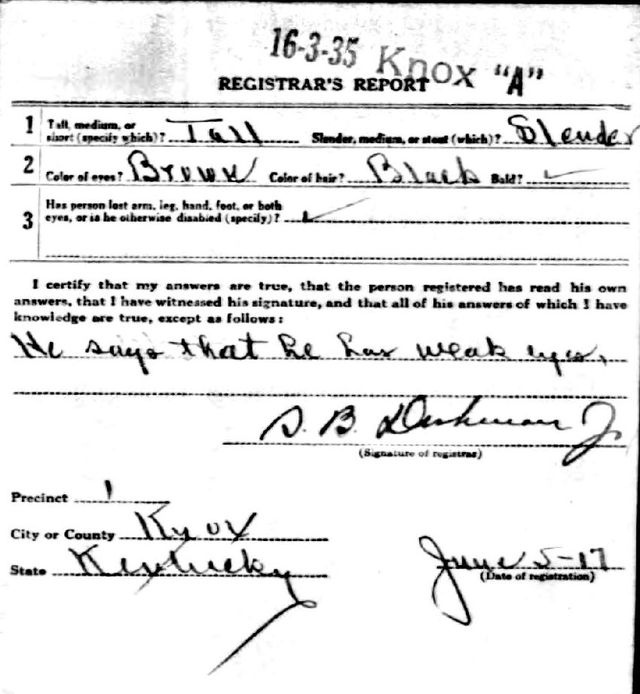 16-3-35 Knox "A"
REGISTRAR'S REPORT
1 Tall, medium, or short (specify which)? Tall Slender, medium, or stout (which)? Slender
2 Color of eyes? Brown Color of hair? Black Bald? ✓
3 Has person lost arm, leg, hand, foot, or both
eyes, or is he otherwise disabled (specify)? ✓
I certify that my answers are true, that the person registered has read his own
answers, that I have witnessed his signature, and that all of his answers of which I have
knowledge are true, except as follows:
He says that he has weak eyes,
S. B. Dishman Jr
(Signature of registrar)
Precinct 1
City or County Knox
State Kentucky
June 5-17
(Date of registration)